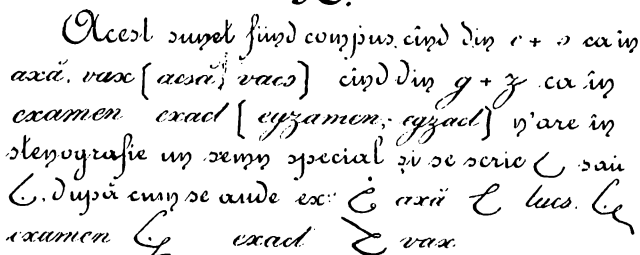 X.
Acest sunet fiind compus cînd din c + s ca în
axă, vax [acsă, vacs] cînd din g + z ca în
examen exact [egzamen, egzact] n'are în
stenografie un semn special și se scrie sau
după cum se aude ex: axă lucs.
examen exact vax.